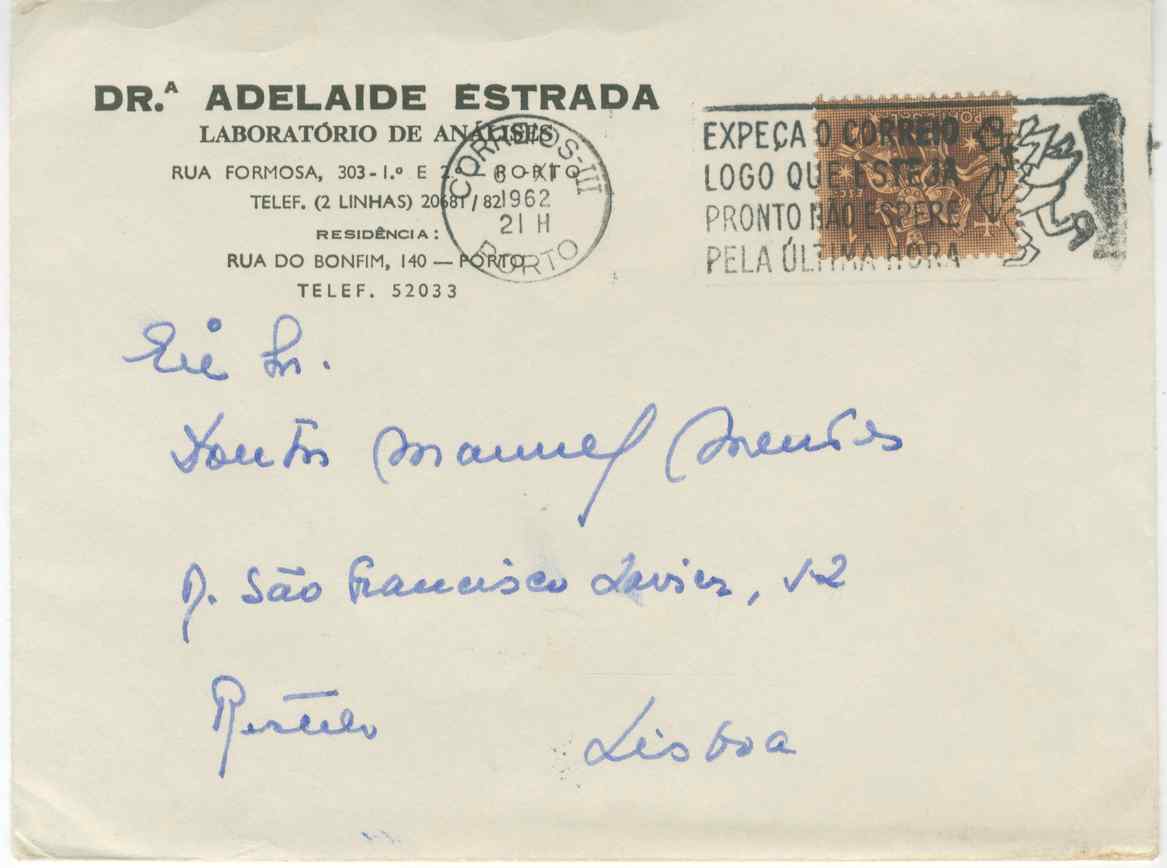 DR.ᴬ ADELAIDE ESTRADA
LABORATÓRIO DE ANÁLISES
RUA FORMOSA, 303-1.º E 2.º — PORTO
TELEF. (2 LINHAS) 20681/82
RESIDÊNCIA:
RUA DO BONFIM, 140 — PORTO
TELEF. 52033
CORREIOS-III
XI
1962
21 H
PORTO
EXPEÇA O CORREIO
LOGO QUE ESTEJA
PRONTO NÃO ESPERE
PELA ÚLTIMA HORA
Sr.
Doutor Manuel Mendes
R. São Francisco Xavier, 12
Restelo Lisboa